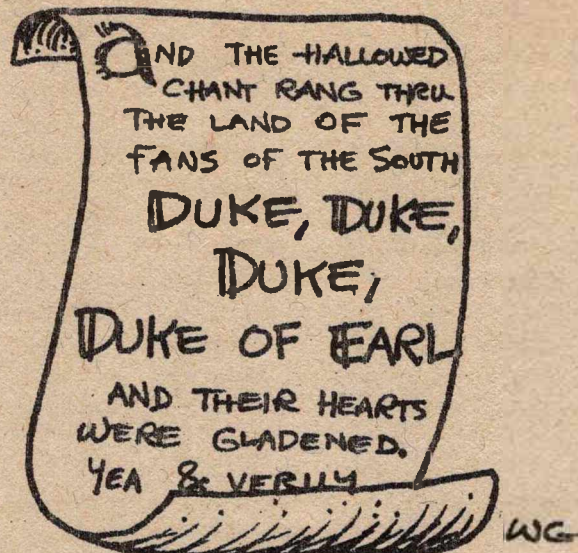 AND THE HALLOWED
CHANT RANG THRU
THE LAND OF THE
FANS OF THE SOUTH
DUKE, DUKE,
DUKE,
DUKE OF EARL
AND THEIR HEARTS
WERE GLADENED.
YEA & VERILY
WG